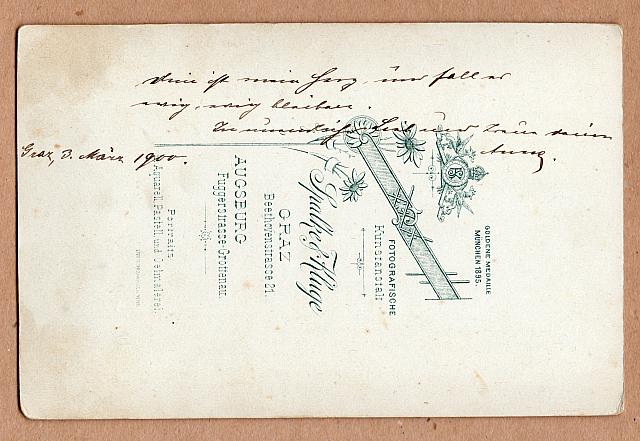 Dein ist mein Herz, und soll es
ewig, ewig bleiben.
In unendlicher Lieb und Treue deine
Graz, 3. März 1900.
GOLDENE MEDAILLE
MÜNCHEN 1895.
FOTOGRAFISCHE
Kunstanstalt
Spalke & Kluge
GRAZ
Beethovenstrasse 21.
AUGSBURG
Fuggerstrasse-Grottenau.
Portraits
Aquarell, Pastell und Oelmalerei.